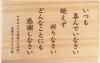 いつも
喜んでいなさい
絶えず
祈りなさい
どんなことにも
感謝しなさい